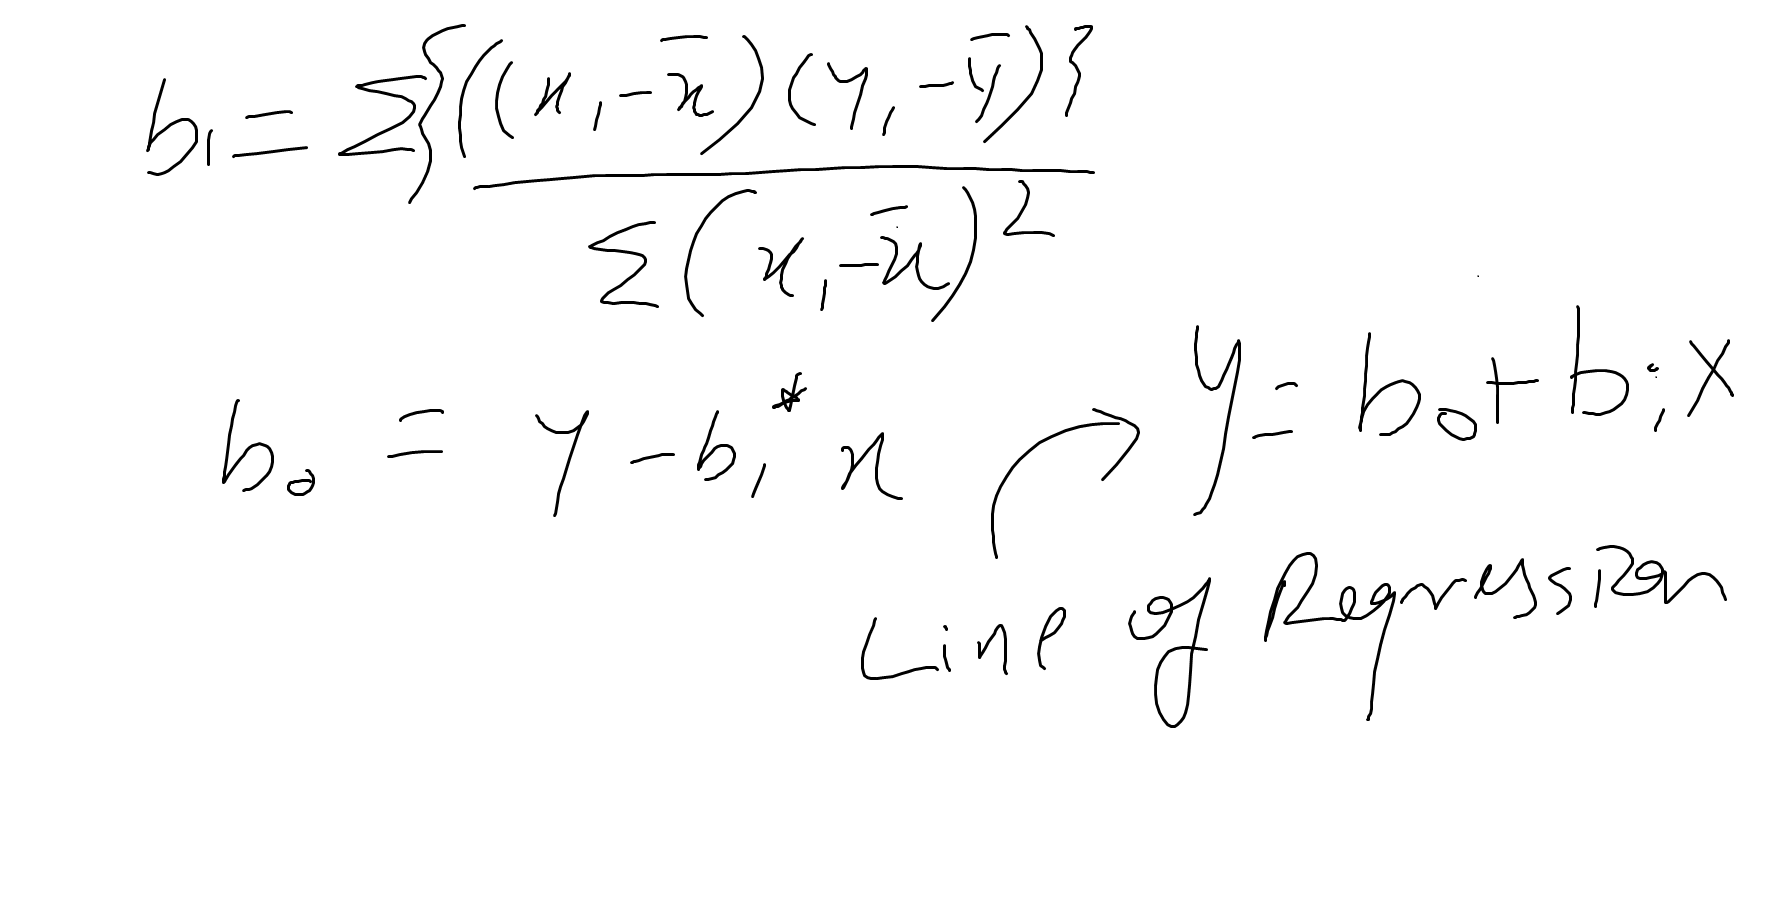 b₁ = Σ{((x₁-x̄)(y₁-ȳ)}
Σ(x₁-x̄)²
b₀ = y - b₁* x
y = b₀ + b₁x
Line of Regression